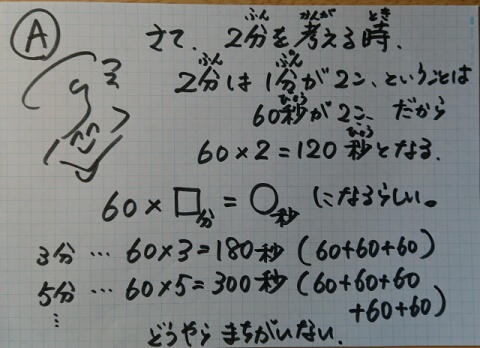 A
さて、2分を考える時、
2分は1分が2こ、ということは
60秒が2こ、だから
60×2=120秒となる。
60×□分=○秒になるらしい。
3分…60×3=180秒(60+60+60)
5分…60×5=300秒(60+60+60
+60+60)
⋮
どうやらまちがいない。